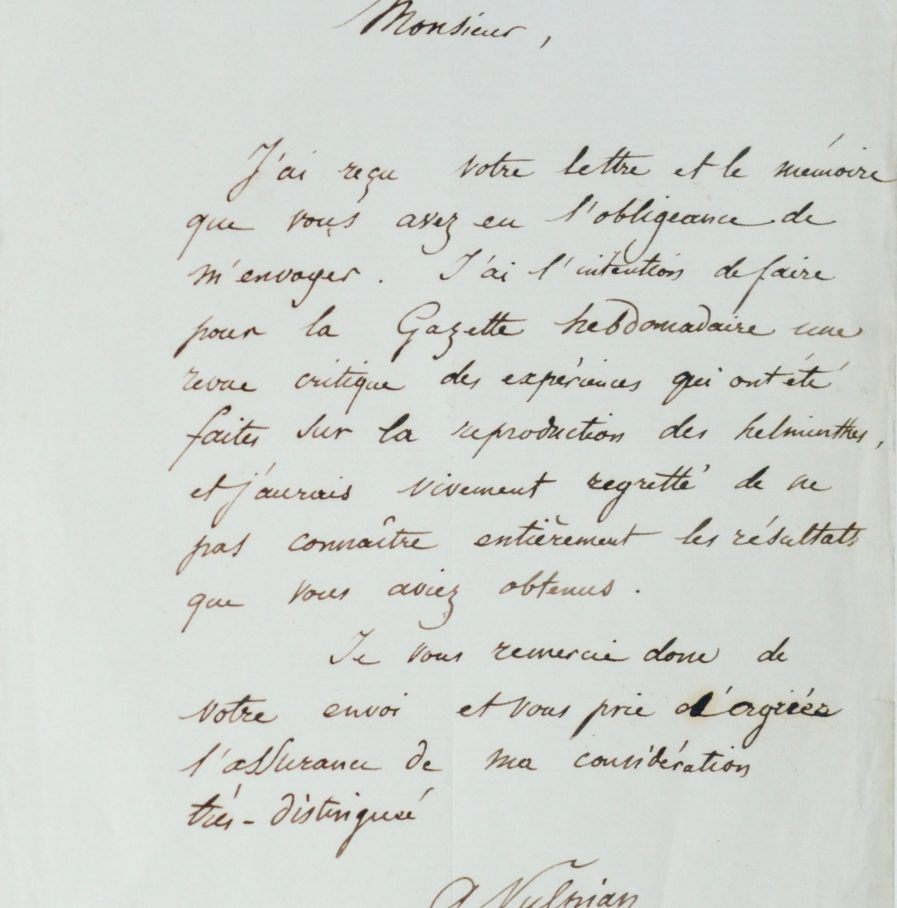 Monsieur,
J'ai reçu votre lettre et le mémoire
que vous avez eu l'obligeance de
m'envoyer. J'ai l'intention de faire
pour la Gazette hebdomadaire une
revue critique des expériences qui ont été
faites sur la reproduction des helminthes,
et j'aurais vivement regretté de ne
pas connaître entièrement les résultats
que vous aviez obtenus.
Je vous remercie donc de
votre envoi et vous prie d'agréer
l'assurance de ma considération
très-distinguée
A Vulpian